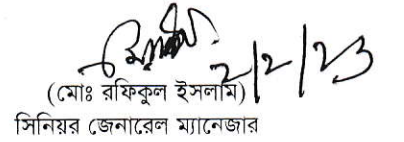 ২/২/২৩
(মোঃ রফিকুল ইসলাম)
সিনিয়র জেনারেল ম্যানেজার